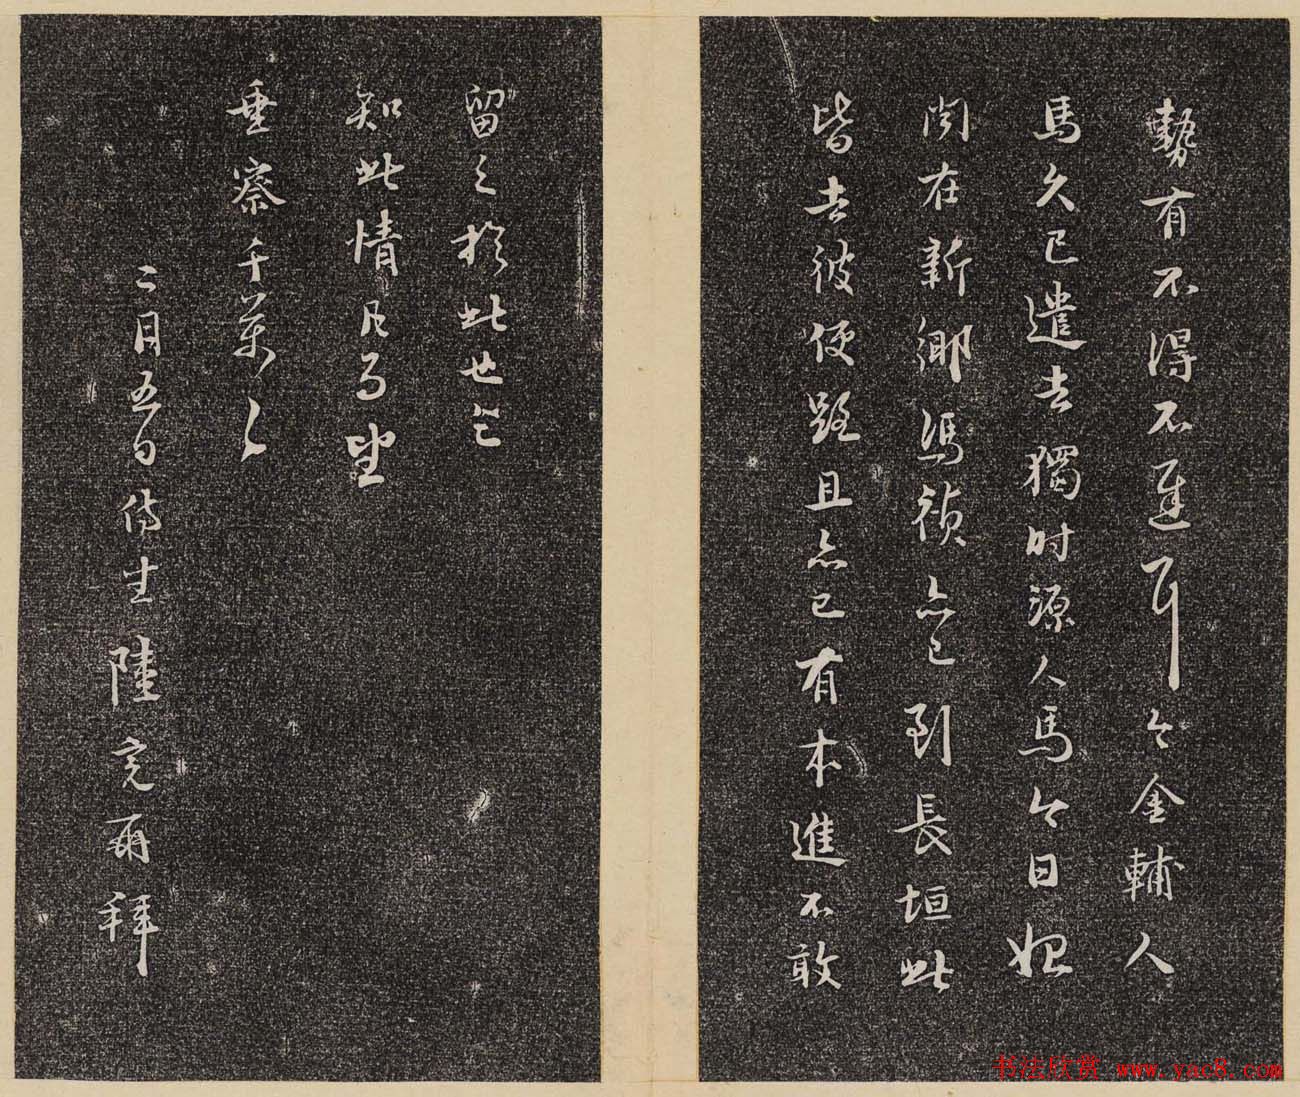 勢有不得不遲耳今金輔人
馬久已遣去獨時源人馬今日始
聞在新鄉馮禎亦已到長垣此
皆去彼便路且亦已有本進不敢
留之於此也
知此情凡 望
垂察千萬〻
二月五日侍生陸完再拜
书法欣赏 www.yac8.com